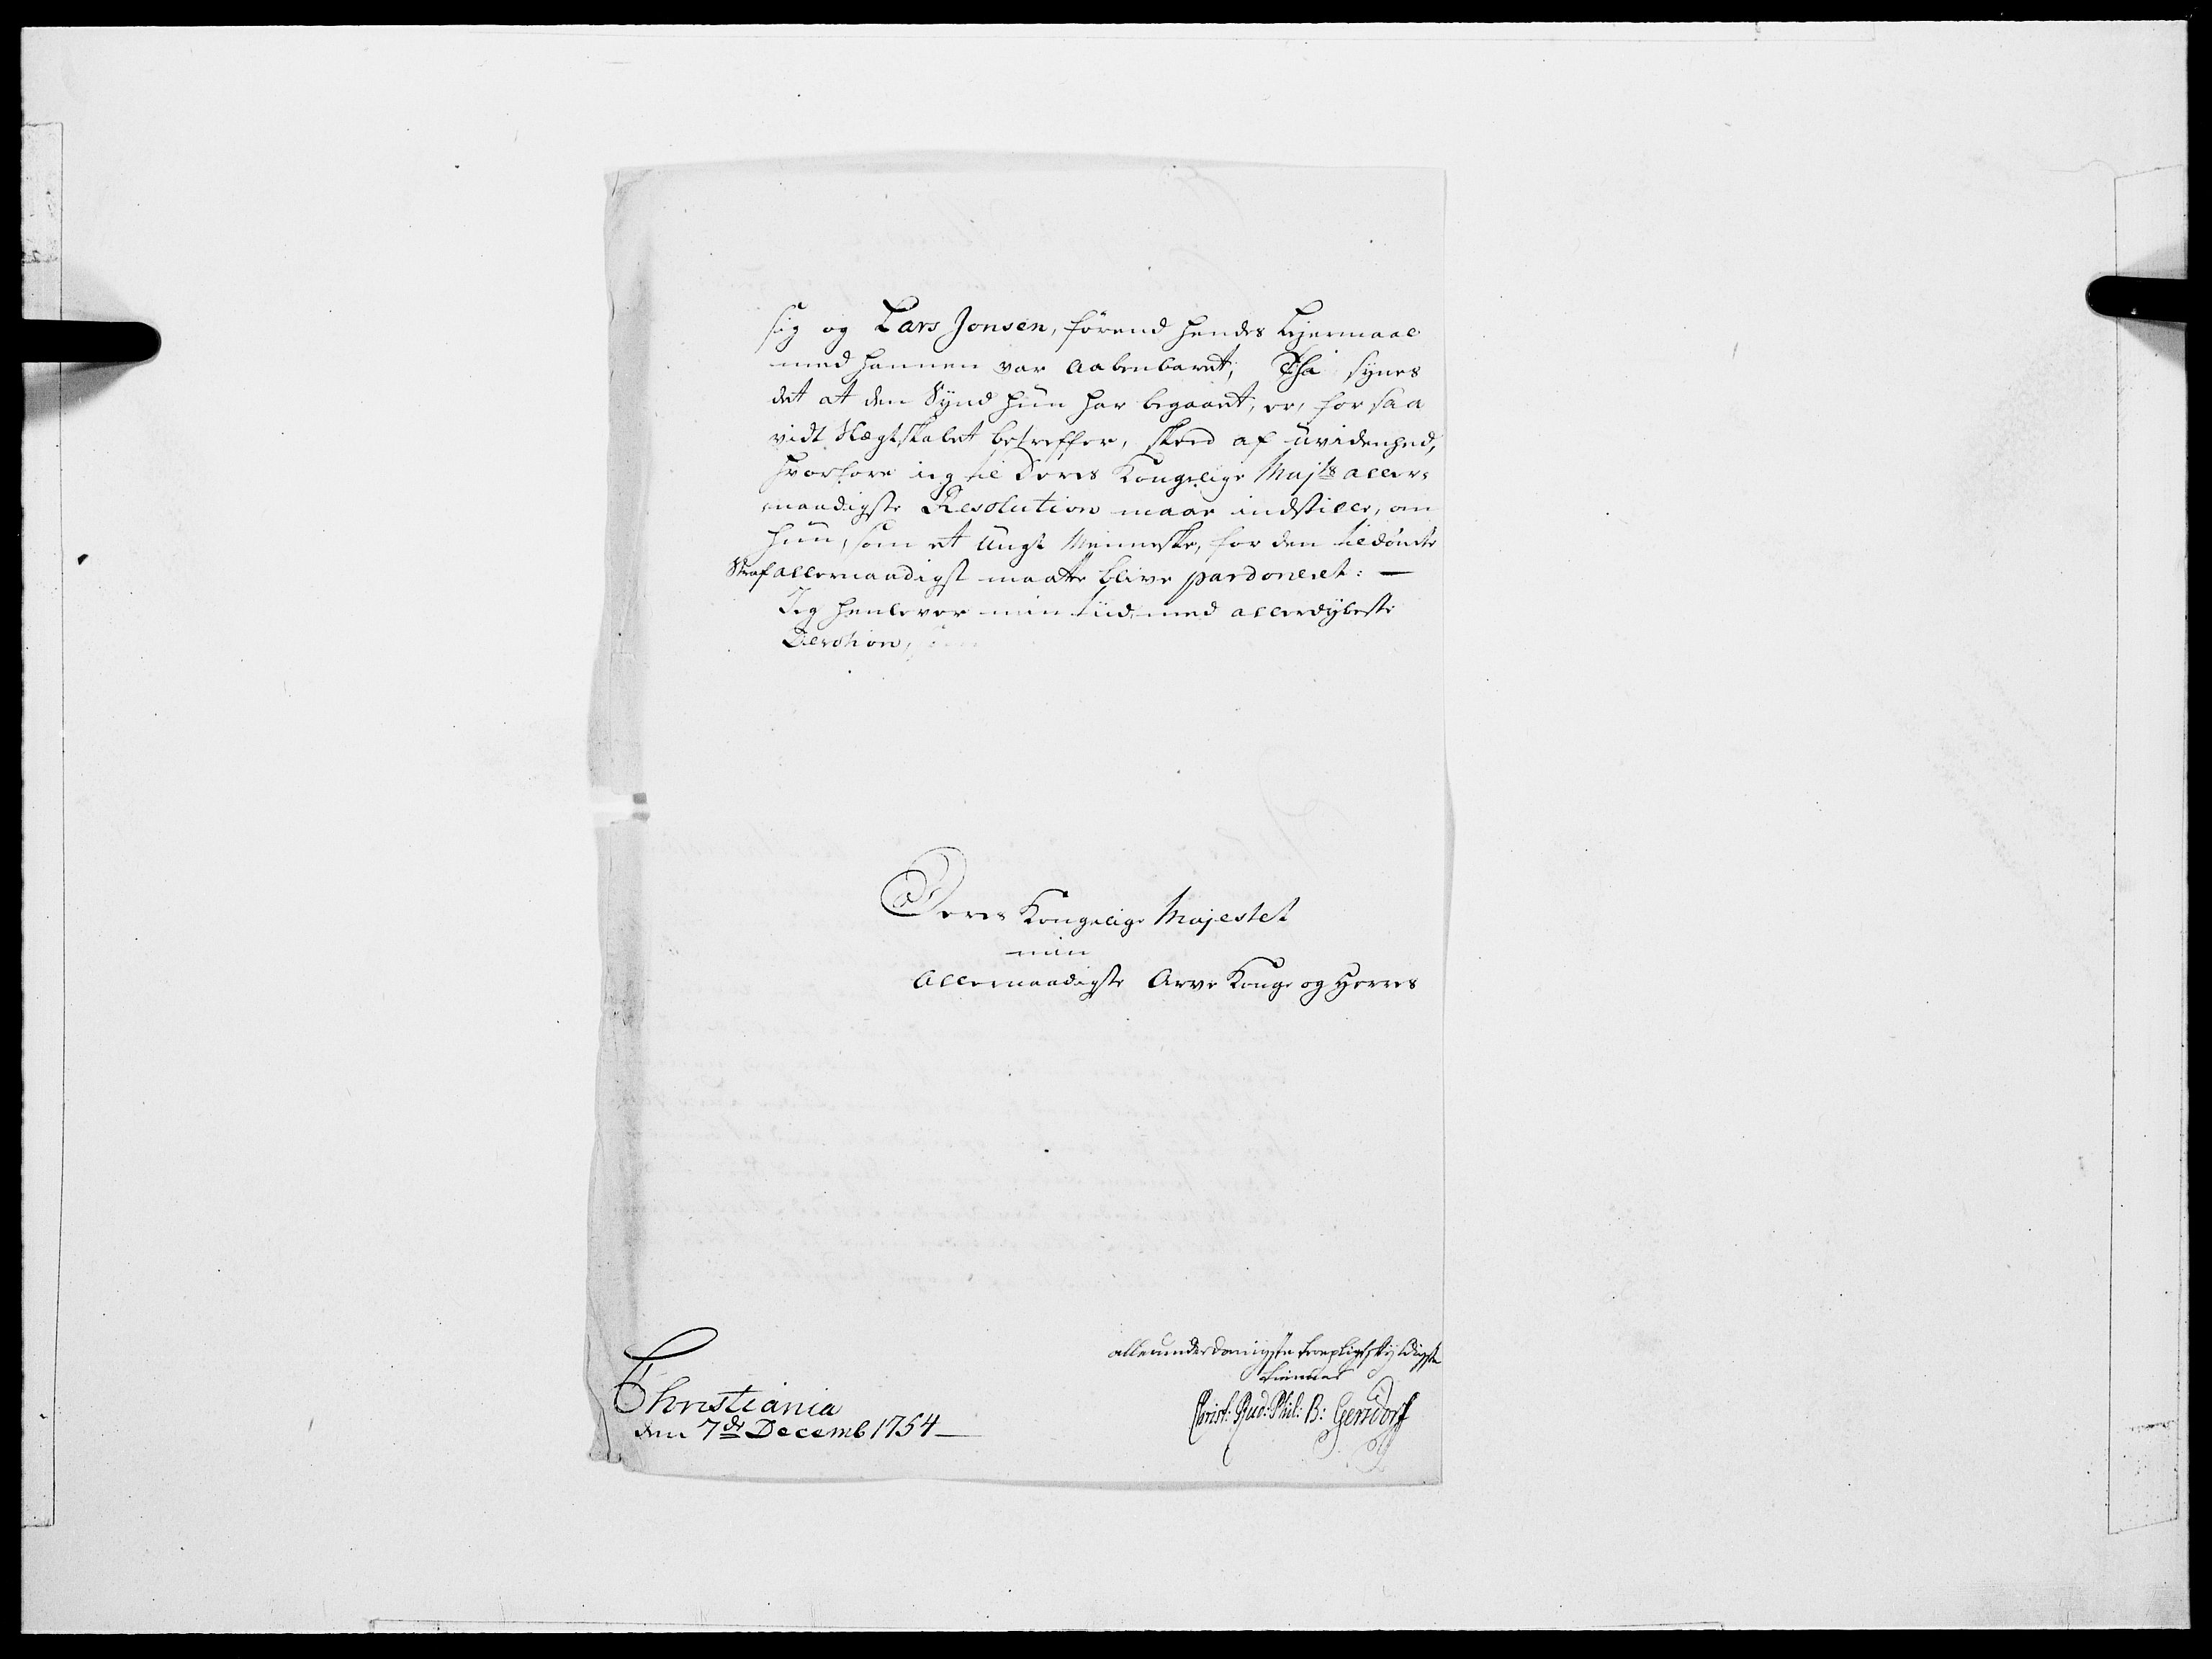 sig og Lars Jonsen, förend hendes Lejermaal
med hannem var aabenbaret; Thi synes
det at den Synd hun har begaaet, er, for saa
vidt Slægtskabet betreffer, skeed af uvidenhed,
hvorfore ieg til Deres Kongelige Majts aller-
naadigste Resolution maae indstille, om
hun, som et ungt Menneske, for den tildömte
Straf allernaadigst maatte blive pardoneret: —
Jeg henlever min tiid med allerdybeste
Devotion,
Deres Kongelige Majestet
min
Allernaadigste Arve Konge og Herres
allerunderdanigste troepligtskyldigste
tienner
Christ: Rud: Phil: B: Gersdorff
Christiania
den 7de Decemb 1754 —